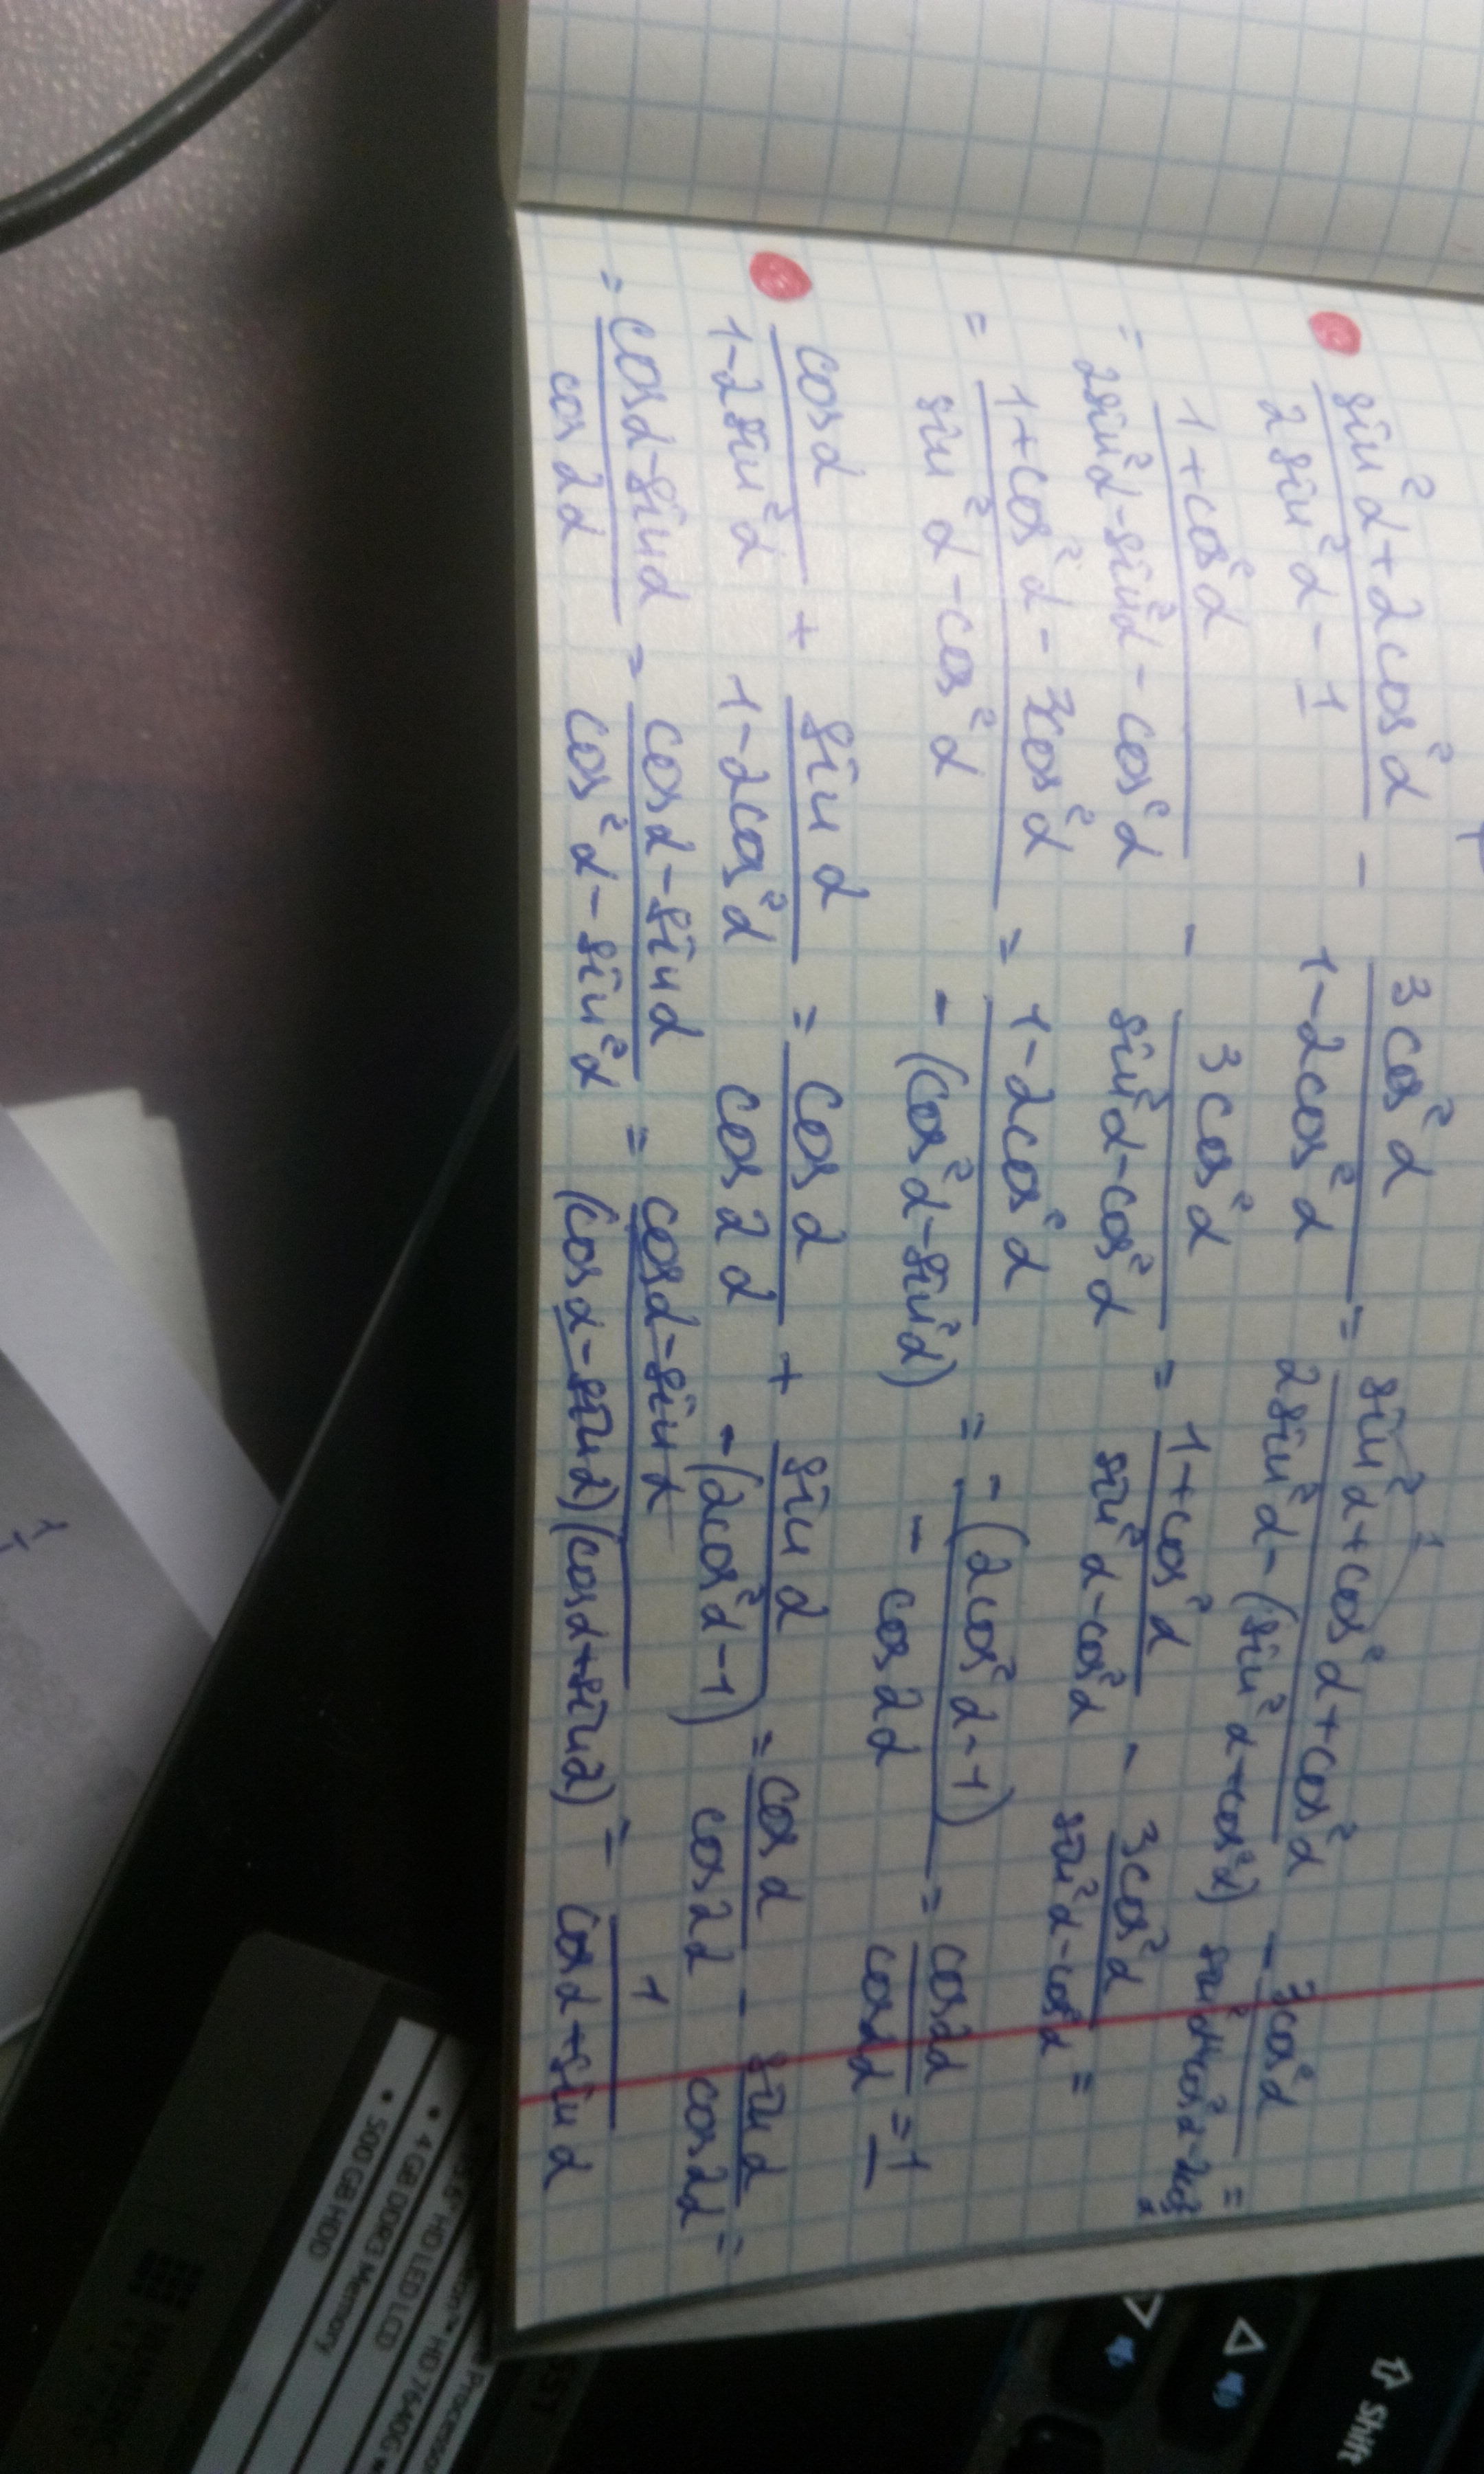 (sin²α+2cos²α)/(2sin²α-1) - 3cos²α/(1-2cos²α) = (sin²α+cos²α+cos²α)/(2sin²α-(sin²α+cos²α)) - 3cos²α/(sin²α+cos²α-2cos²α) =
1
= (1+cos²α)/(2sin²α-sin²α-cos²α) - 3cos²α/(sin²α-cos²α) = (1+cos²α)/(sin²α-cos²α) - 3cos²α/(sin²α-cos²α) =
= (1+cos²α-3cos²α)/(sin²α-cos²α) = (1-2cos²α)/(-(cos²α-sin²α)) = -(2cos²α-1)/(-cos2α) = cos2α/cos2α = 1
cosα/(1-2sin²α) + sinα/(1-2cos²α) = cosα/cos2α + sinα/(-(2cos²α-1)) = cosα/cos2α - sinα/cos2α =
= (cosα-sinα)/cos2α = (cosα-sinα)/(cos²α-sin²α) = (cosα-sinα)/((cosα-sinα)(cosα+sinα)) = 1/(cosα+sinα)
Shift
HD 7640G
HD LED LCD
• 4 GB DDR3 Memory
• 500 GB HDD